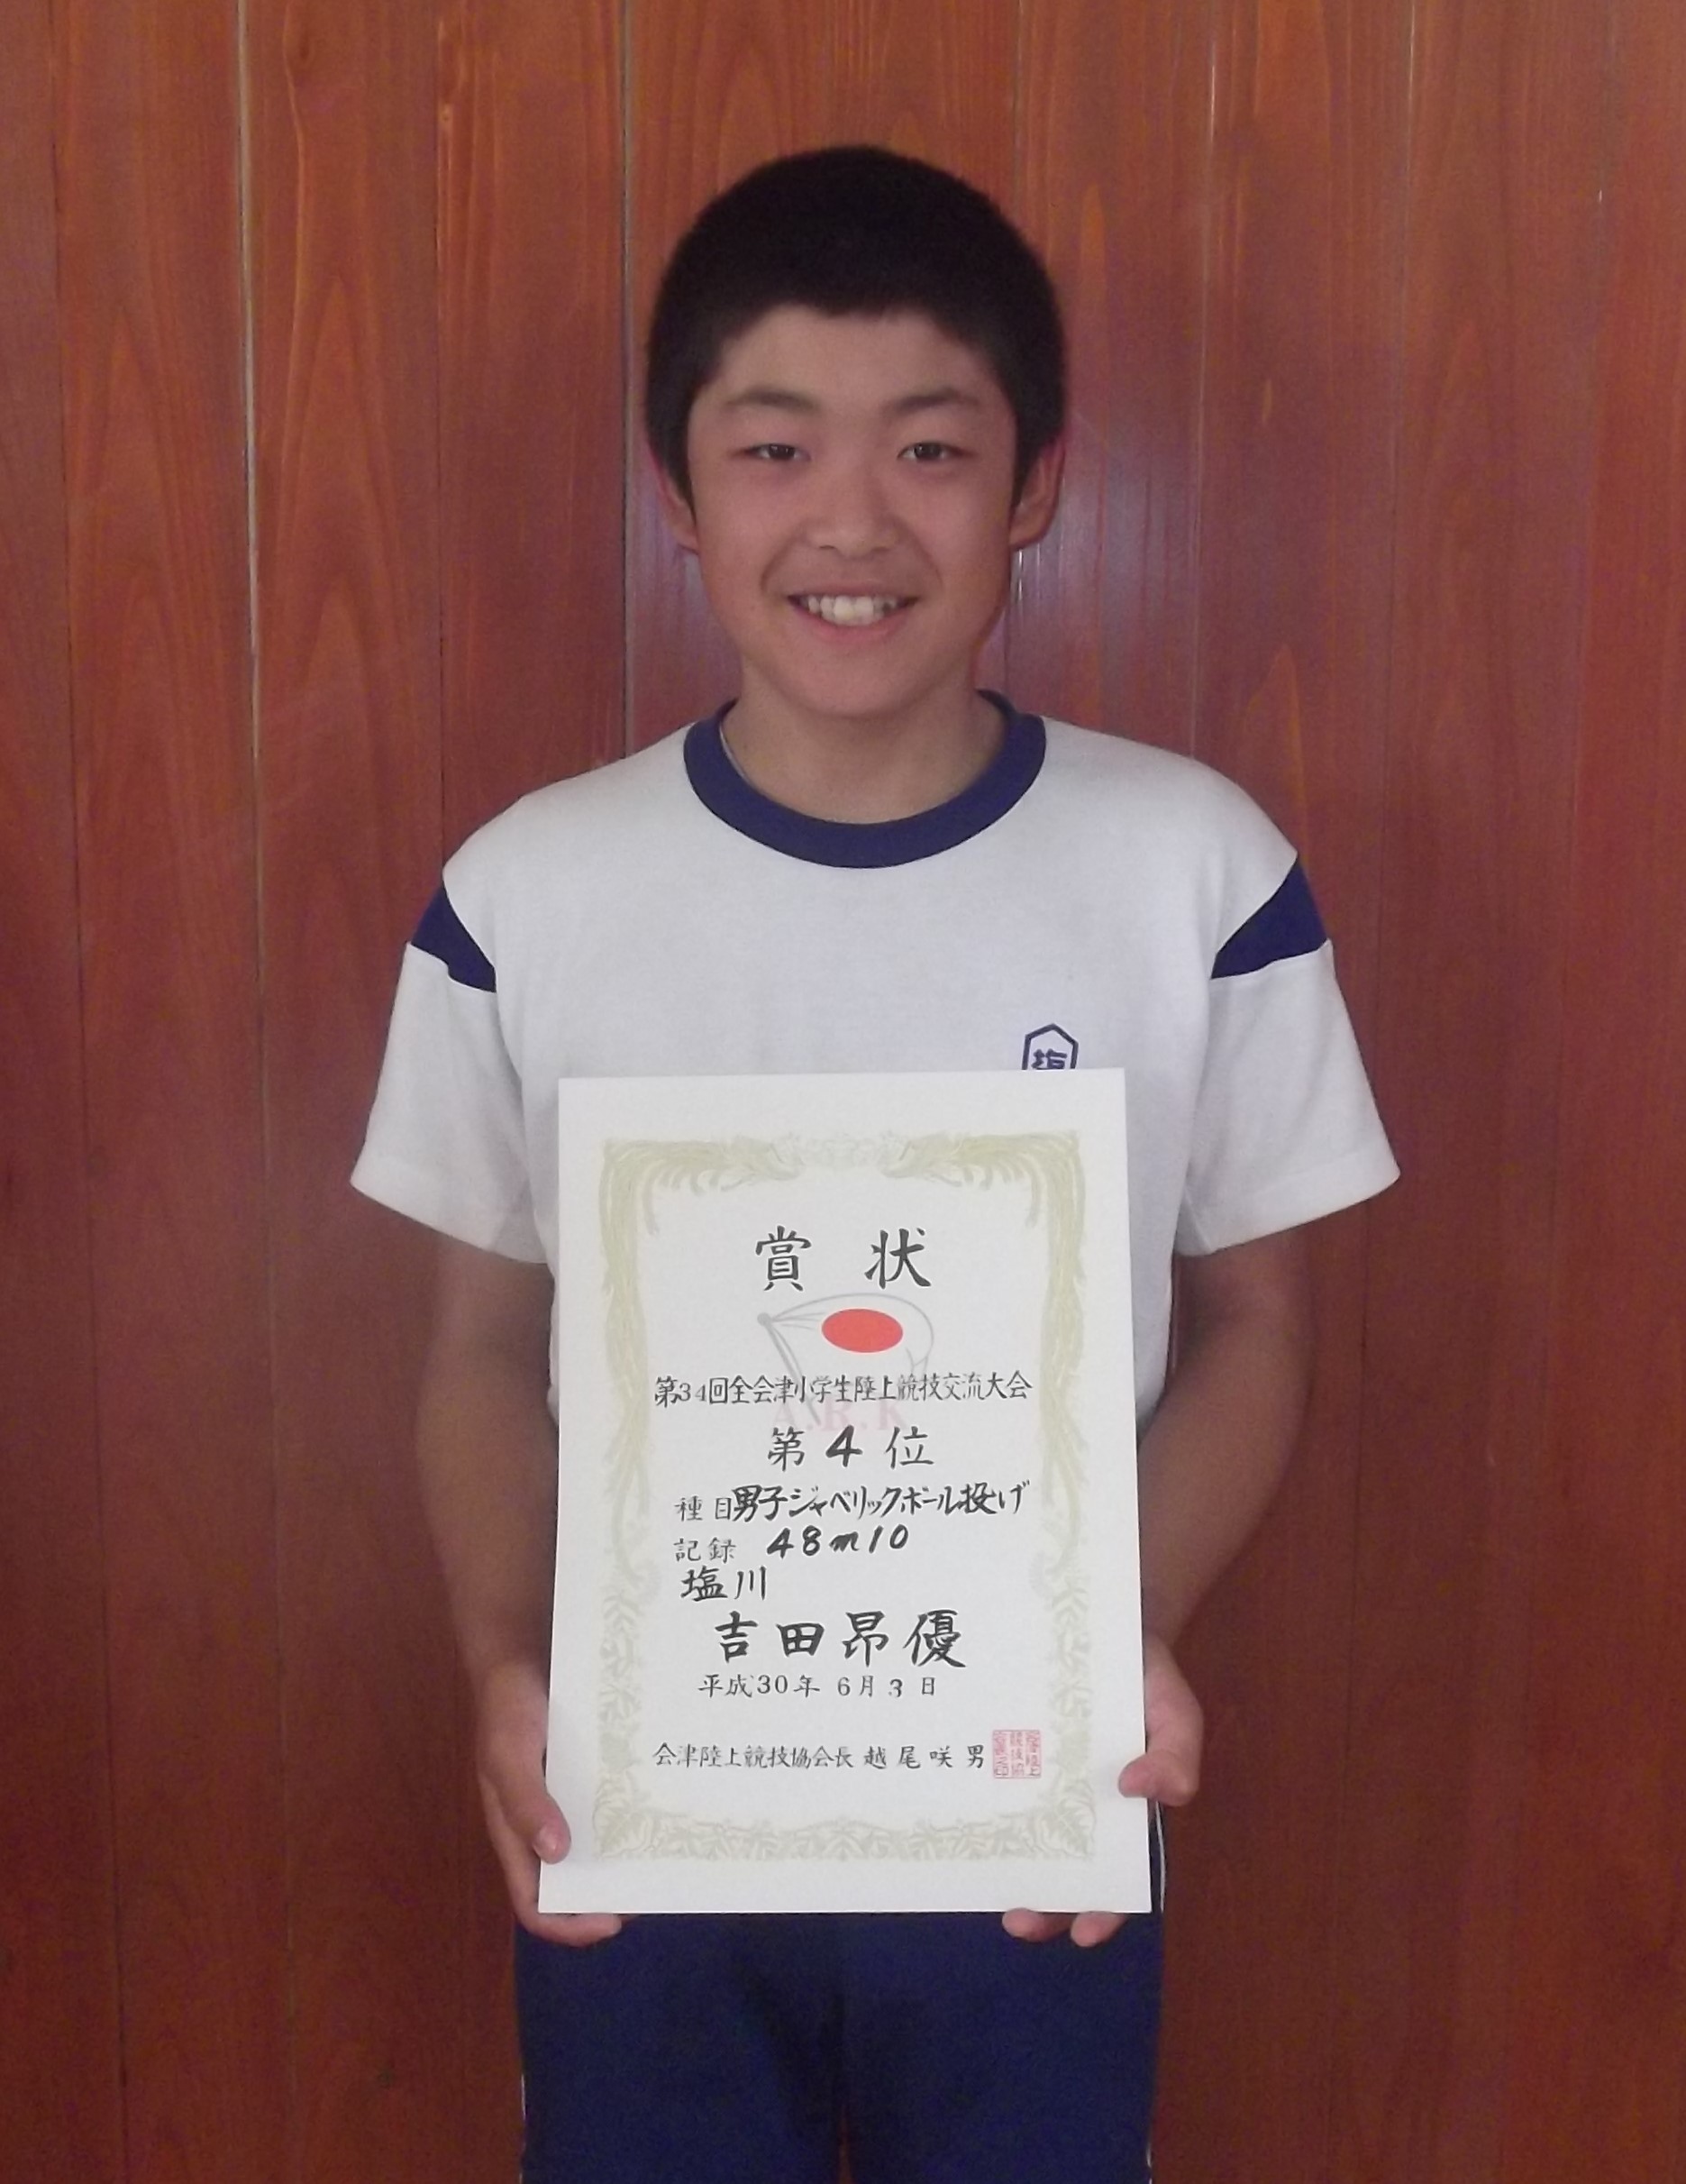 塩
賞状
第34回全会津小学生陸上競技交流大会
A.R.K
第4位
種目男子ジャベリックボール投げ
記録 48m10
塩川
吉田昂優
平成30年 6月 3日
会津陸上競技協会長 越尾咲男